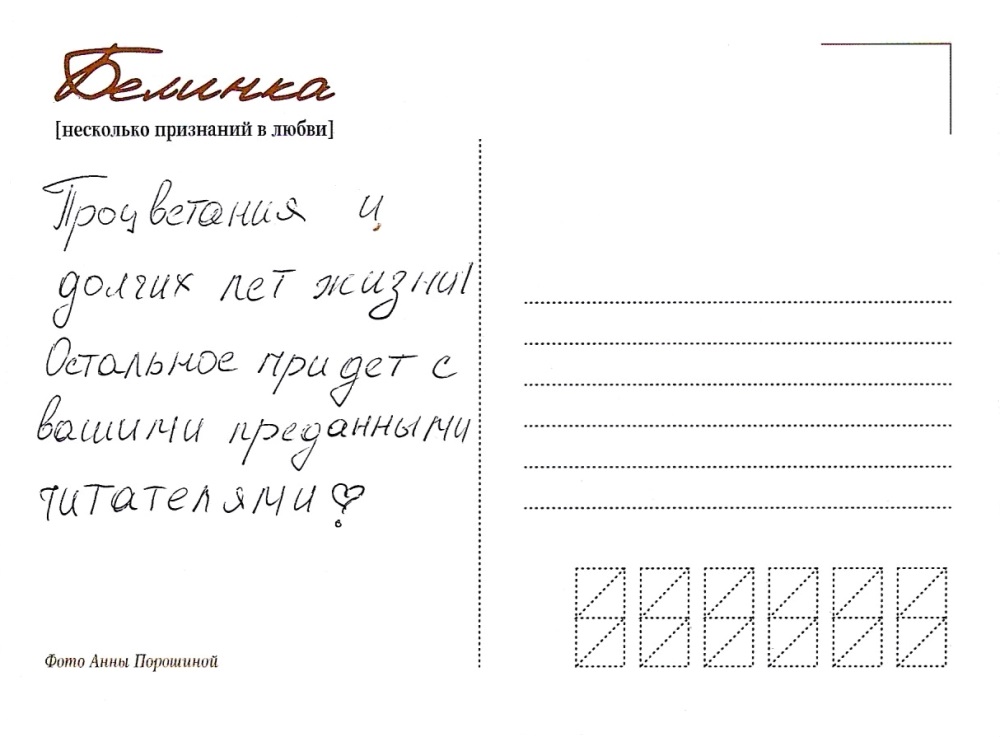 Белинка
[несколько признаний в любви]
Процветания и
долгих лет жизни!
Остальное придет с
вашими преданными
читателями
Фото Анны Порошиной